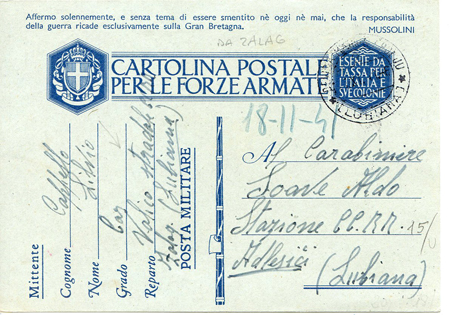 Affermo solennemente, e senza tema di essere smentito nè oggi nè mai, che la responsabilità
della guerra ricade esclusivamente sulla Gran Bretagna.
MUSSOLINI
DA ZALAG
CARTOLINA POSTALE
PER LE FORZE ARMATE
ESENTE DA
TASSA PER
L'ITALIA E
SVE COLONIE
(LUBIANA)
18-11-41
Al Carabiniere
Soave Aldo
Stazione CC.RR. 15/
Adlesici
(Lubiana)
Mittente
Cognome
Nome Silvio
Grado
Reparto
(Lubiana)
POSTA MILITARE